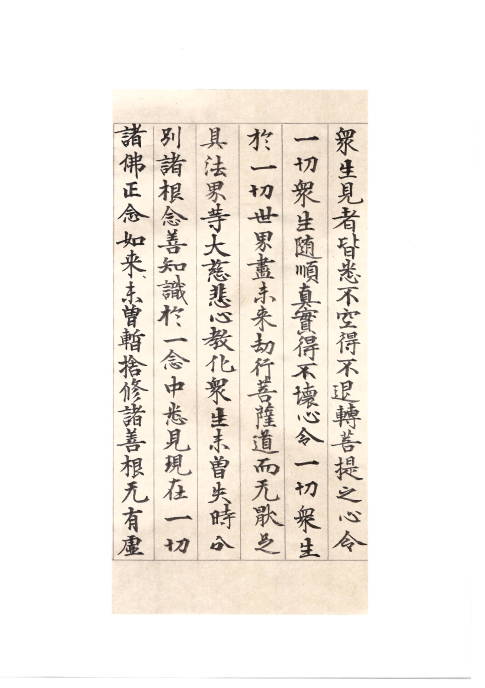 衆生見者皆悉不空得不退轉菩提之心令
一切衆生随順真實得不壊心令一切衆生
於一切世界盡未来劫行菩薩道而无猒足
具法界等大慈悲心教化衆生未曽失時分
別諸根念善知識於一念中悉見現在一切
諸佛正念如来未曽暫捨修諸善根无有虚